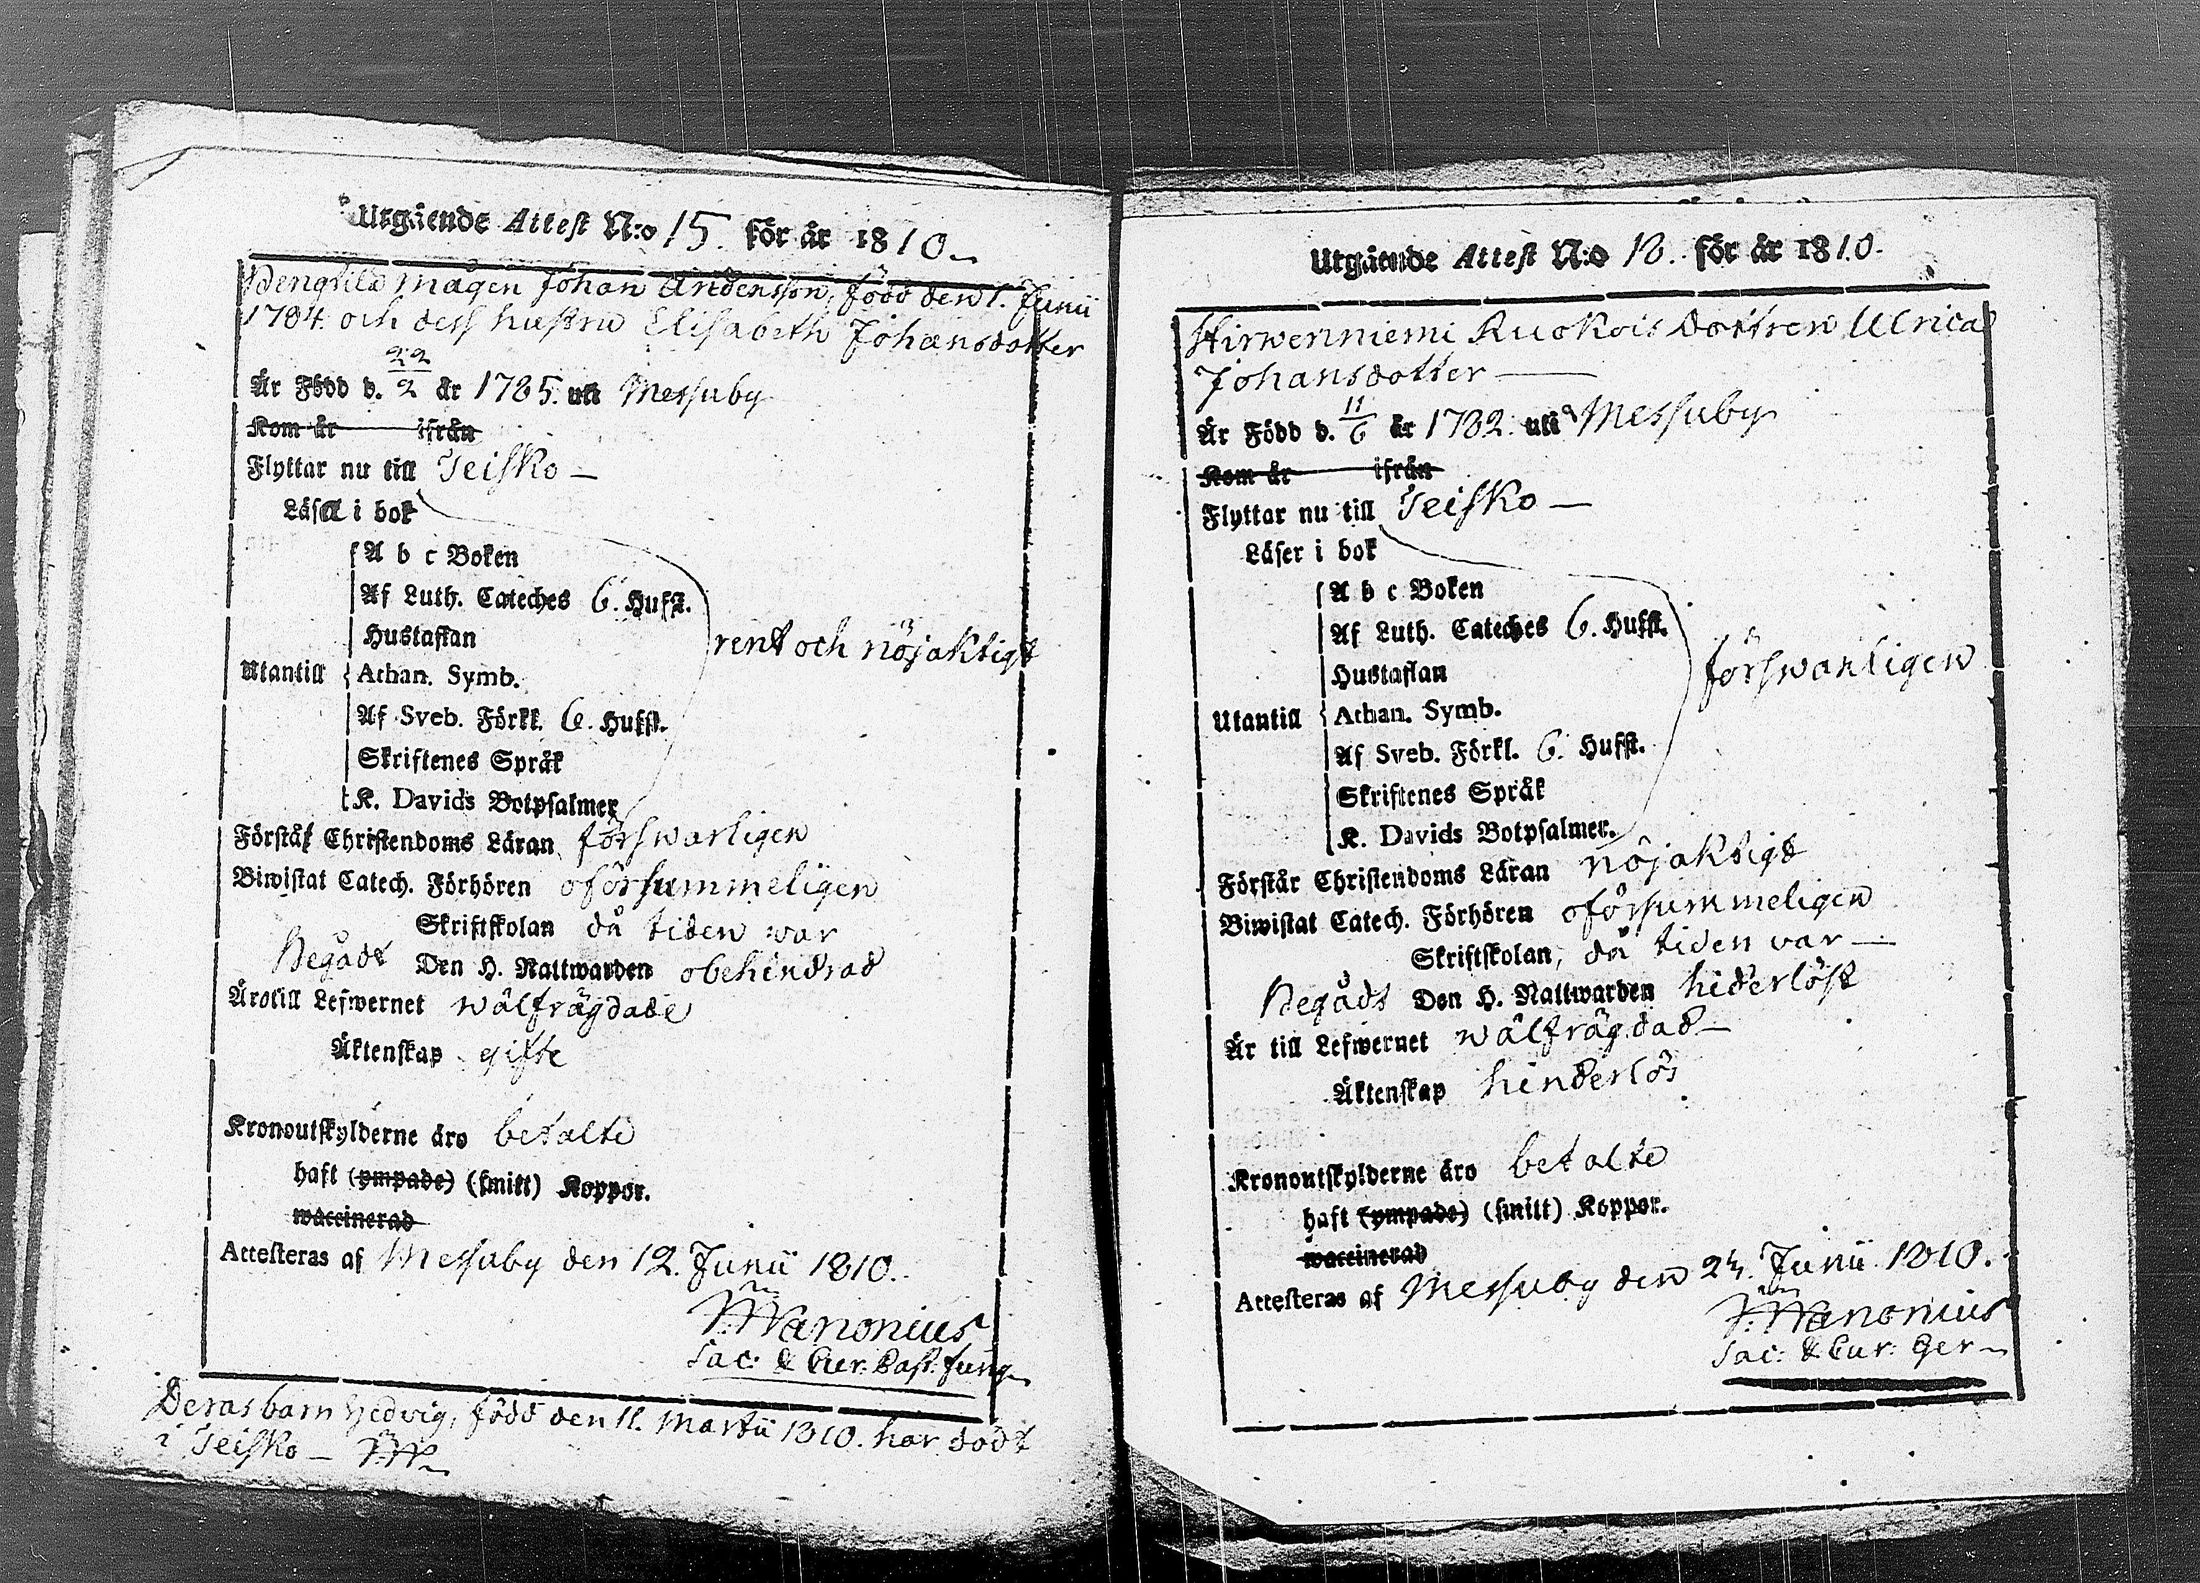 Utgående Attest N:o 15. för år 1810.
mågen Johan Andersson, född den 1. Junii
1784. och dess hustru Elisabeth Johansdotter
Är Född d. 22/2 år 1785. uti Messuby
Kom år ifrån
Flyttar nu till Teisko
Läsa i bok
A b c Boken
Af Luth. Cateches 6. Hufst.
Hustaflan
rent och nöjaktigt
Utantill
Athan. Symb.
Af Sveb. Förkl. 6. Hufst.
Skriftenes Språk
K. Davids Botpsalmer
Förstå Christendoms Läran försvarligen
Biwistat Catech. Förhören oförsummeligen
Skriftskolan då tiden war
Begådt Den H. Nattwarden obehindrad
Äro till Lefwernet wälfrägdade
Äktenskap gifte
Kronoutskylderne äro betalte
haft (ympade) (smitt) Koppor.
waccinerad
Attesteras af Messuby den 12. Junii 1810.
Wanonius
Sac: & Cur. Past. fung
Deras barn Hedvig, född den 11. Martii 1810. har dödt
i Teisko
Utgående Attest N:o 18. för år 1810.
Hirwenniemi Ruokois Dottren Ulrica
Johansdotter
Är Född d. 11/6 år 1782. uti Messuby
Kom år ifrån
Flyttar nu till Teisko
Läser i bok
A b c Boken
Af Luth. Cateches 6. Hufst.
Hustaflan
försvarligen
Utantill
Athan. Symb.
Af Sveb. Förkl. 6. Hufst.
Skriftenes Språk
K. Davids Botpsalmer.
Förstår Christendoms Läran nöjaktigt
Biwistat Catech. Förhören oförsummeligen
Skriftskolan, då tiden var
Begådt Den H. Nattwarden hiderlöst
Är till Lefwernet wälfrägdad
Äktenskap hinderlös
Kronoutskylderne äro betalte
haft (ympade) (smitt) Koppor.
waccinerad
Attesteras af Messuby den 24. Junii 1810.
Wanonius
Sac: & Cur: Ger